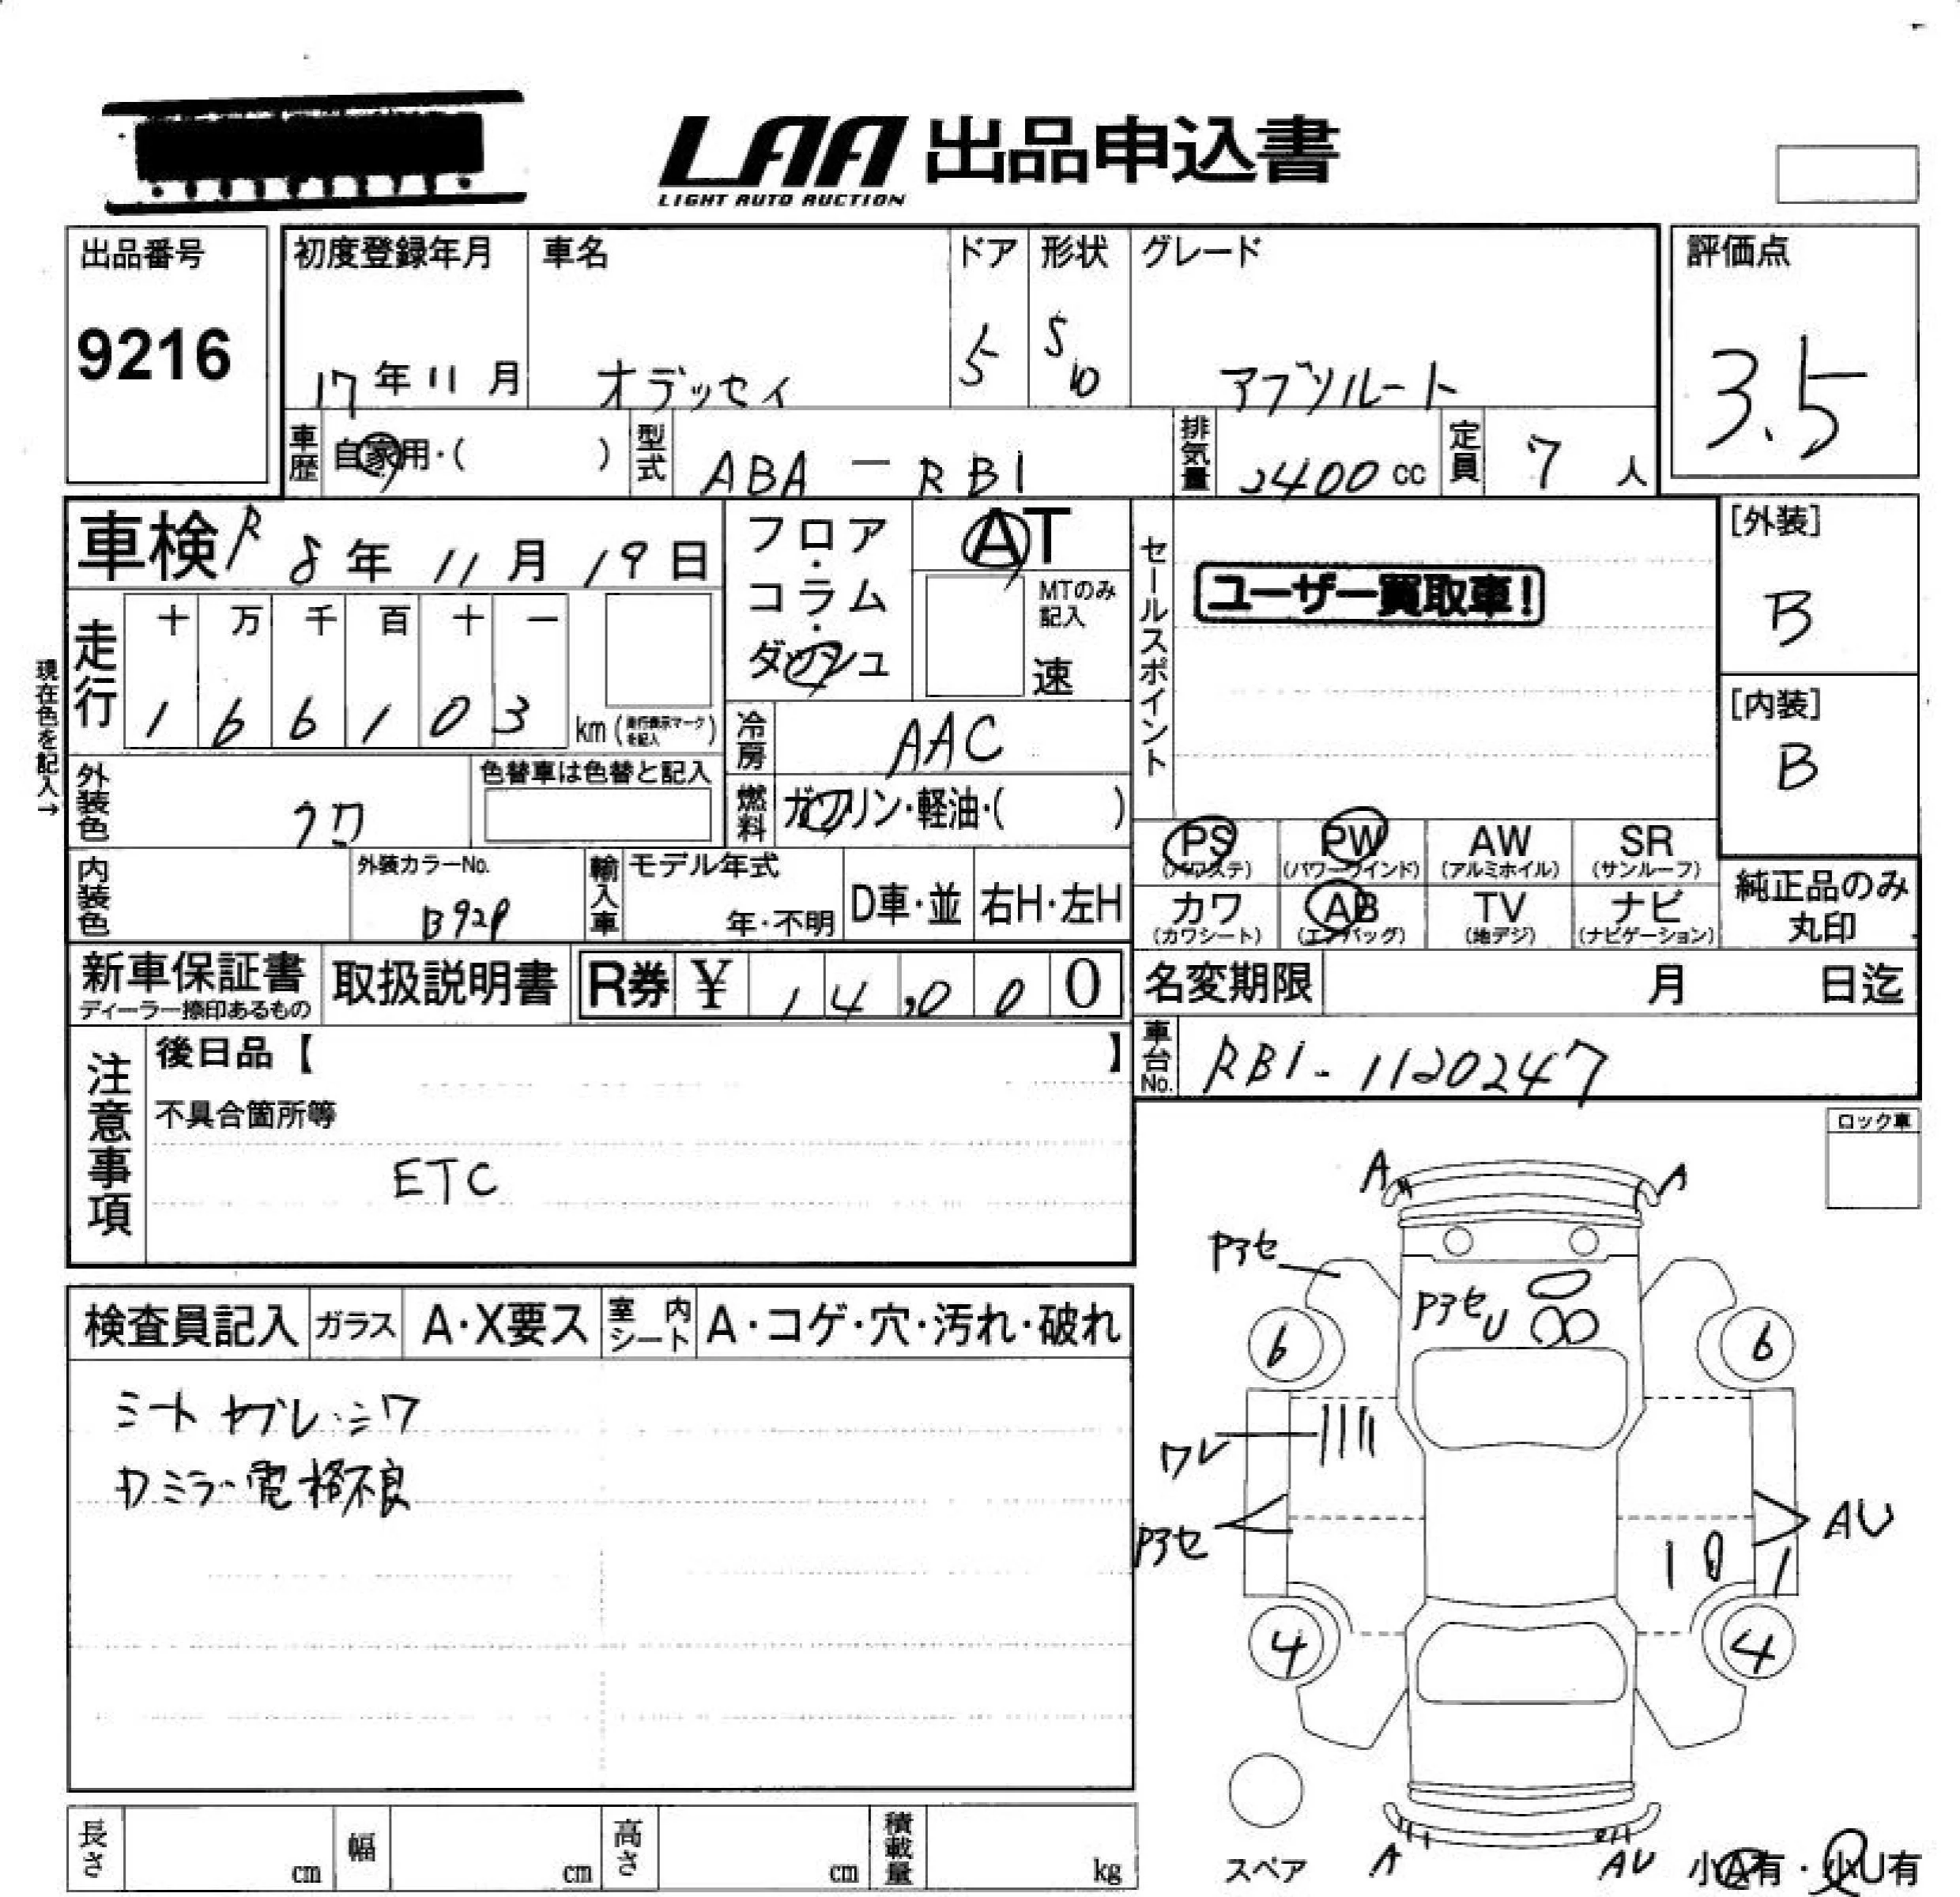 LAA 出品申込書
LIGHT AUTO AUCTION
出品番号
9216
初度登録年月
17年11月
車名
オデッセイ
ドア
5
形状
S
10
グレード
アブソルート
評価点
3.5
車歴
自家用・( )
型式
ABA - RB1
排気量
2400 cc
定員
7人
車検 R 8年 11月 19日
フロア・コラム・ダッシュ
AT
MTのみ記入
速
セールスポイント
ユーザー買取車!
[外装]
B
[内装]
B
現在色を記入→
走行
十 万 千 百 十 一
1 6 6 1 0 3
km(走行表示マークを記入)
冷房
AAC
外装色
クロ
色替車は色替と記入
燃料
ガソリン・軽油・( )
PS
(パワステ)
PW
(パワーウインド)
AW
(アルミホイル)
SR
(サンルーフ)
カワ
(カワシート)
AB
(エアバッグ)
TV
(地デジ)
ナビ
(ナビゲーション)
純正品のみ
丸印
内装色
外装カラーNo.
B92P
輸入車
モデル年式
年・不明
D車・並
右H・左H
新車保証書
ディーラー捺印あるもの
取扱説明書
R券 ¥ 14,000
名変期限
月 日迄
車台No.
RB1-1120247
注意事項
後日品【 】
不具合箇所等
ETC
ロック車
検査員記入
ガラス
A・X要ス
室内シート
A・コゲ・穴・汚れ・破れ
シート ヤブレ・シワ
ミラー電格不良
A
A
Pアセ
PアセU
6
6
ワレ
Pアセ
AU
4
4
スペア
A
AU
小A有・小U有
長さ
cm
幅
cm
高さ
cm
積載量
kg